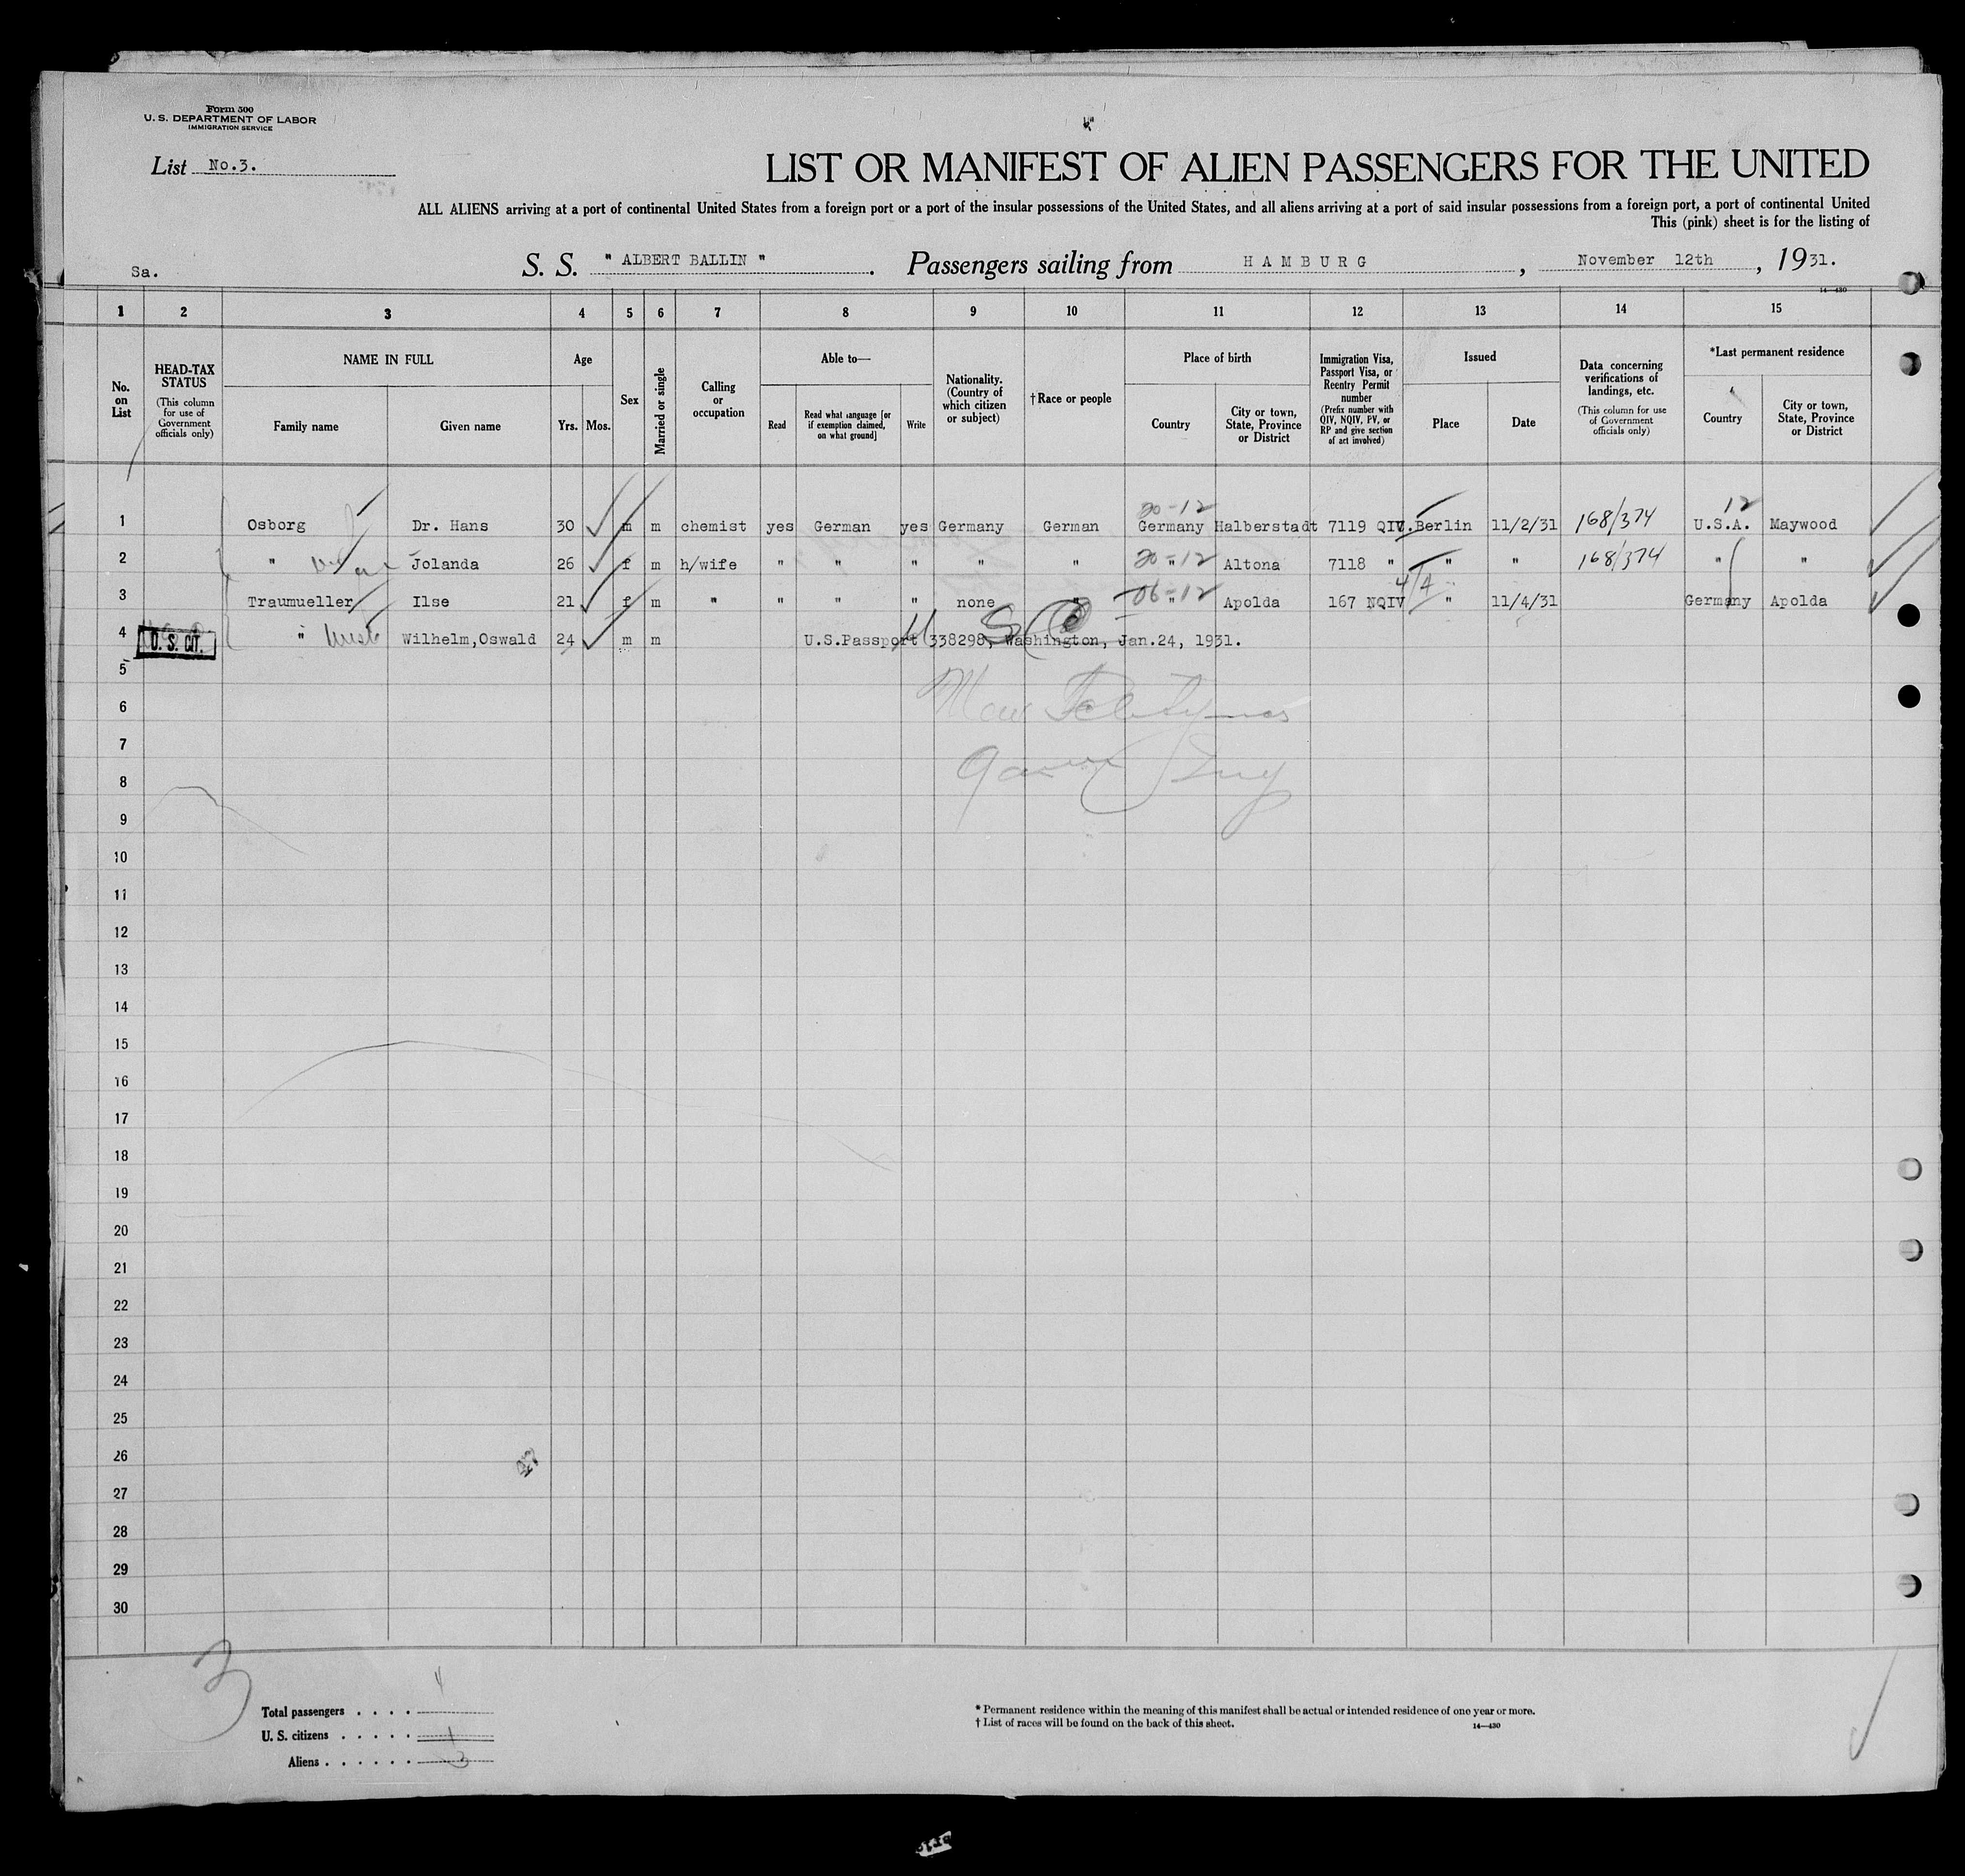 Form 500
U. S. DEPARTMENT OF LABOR
IMMIGRATION SERVICE
List No.3.
LIST OR MANIFEST OF ALIEN PASSENGERS FOR THE UNITED
ALL ALIENS arriving at a port of continental United States from a foreign port or a port of the insular possessions of the United States, and all aliens arriving at a port of said insular possessions from a foreign port, a port of continental United
This (pink) sheet is for the listing of
Sa. S. S. " ALBERT BALLIN " . Passengers sailing from HAMBURG , November 12th , 1931.
14—430
1 2 3 4 5 6 7 8 9 10 11 12 13 14 15
No. on List
HEAD-TAX STATUS (This column for use of Government officials only)
NAME IN FULL
Family name
Given name
Age
Yrs. Mos.
Sex
Married or single
Calling or occupation
Able to—
Read
Read what language [or if exemption claimed, on what ground]
Write
Nationality. (Country of which citizen or subject)
†Race or people
Place of birth
Country
City or town, State, Province or District
Immigration Visa, Passport Visa, or Reentry Permit number (Prefix number with QIV, NQIV, PV, or RP and give section of act involved)
Issued
Place
Date
Data concerning verifications of landings, etc. (This column for use of Government officials only)
*Last permanent residence
Country
City or town, State, Province or District
20-12 12
1 Osborg Dr. Hans 30 m m chemist yes German yes Germany German Germany Halberstadt 7119 QIV. Berlin 11/2/31 168/374 U.S.A. Maywood
2 " Jolanda 26 f m h/wife " " " " " 20-12 " Altona 7118 " " " 168/374 " "
3 Traumueller Ilse 21 f m " " " " none " 06-12 " Apolda 167 NQIV 4/4 " 11/4/31 Germany Apolda
4 U. S. CIT. " Wilhelm,Oswald 24 m m U.S.Passport 338298, Washington, Jan.24, 1931.
5
6
7
8
9
10
11
12
13
14
15
16
17
18
19
20
21
22
23
24
25
26
27
28
29
30
3
Total passengers . . . . 4
U. S. citizens . . . . . 1
Aliens . . . . . . 3
* Permanent residence within the meaning of this manifest shall be actual or intended residence of one year or more.
† List of races will be found on the back of this sheet.
14—430